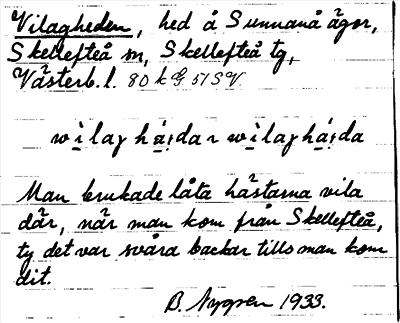 Vilagheden, hed å Sunnanå ägor,
Skellefteå sn, Skellefteå tg,
Västerb. l. 80 k G 51 SV.
wìlag há̩i̩dan wìlag há̩i̩da
Man brukade låta hästarna vila
där, när man kom från Skellefteå,
ty det var svåra backar tills man kom
dit.
B. Nygren 1933.